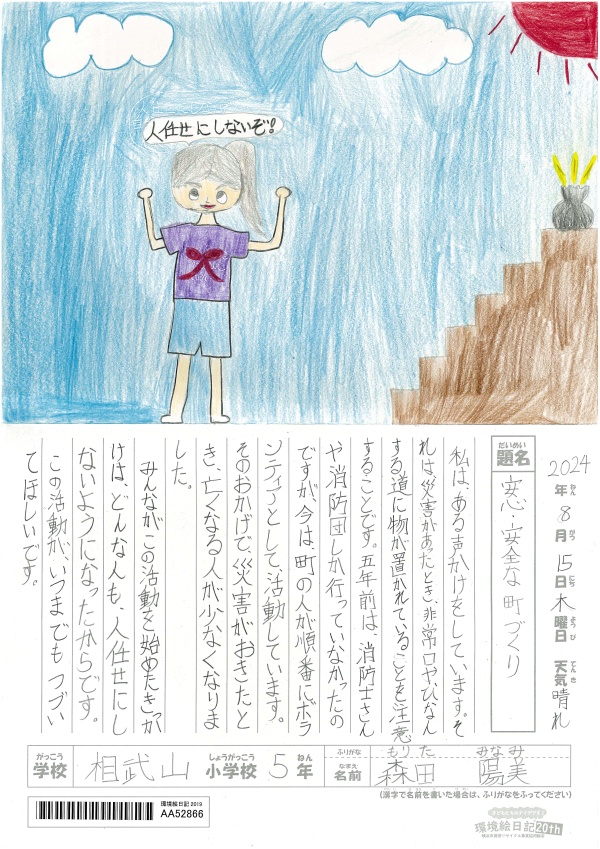 人任せにしないぞ!
2024年8月15日木曜日 天気晴れ
ねん がつ にち ようび てんき
だいめい
題名
安心・安全な町づくり
私は、ある声かけをしています。そ
れは災害があったとき、非常口やひなん
する道に物が置かれていることを注意
することです。五年前は、消防士さん
や消防団しか行っていなかったの
ですが、今は、町の人が順番にボラ
ンティアとして、活動しています。
そのおかげで、災害がおきたと
き、亡くなる人が少なくなりま
した。
みんなが、この活動を始めたきっか
けは、どんな人も、人任せにし
ないようになったからです。
この活動が、いつまでもつづい
てほしいです。
がっこう しょうがっこう ねん
学校 相武山 小学校 5年
ふりがな もりた みなみ
なまえ
名前 森田 陽美
(漢字で名前を書いた場合は、ふりがなをふってください)
環境絵日記2019
AA52866
環境絵日記20th